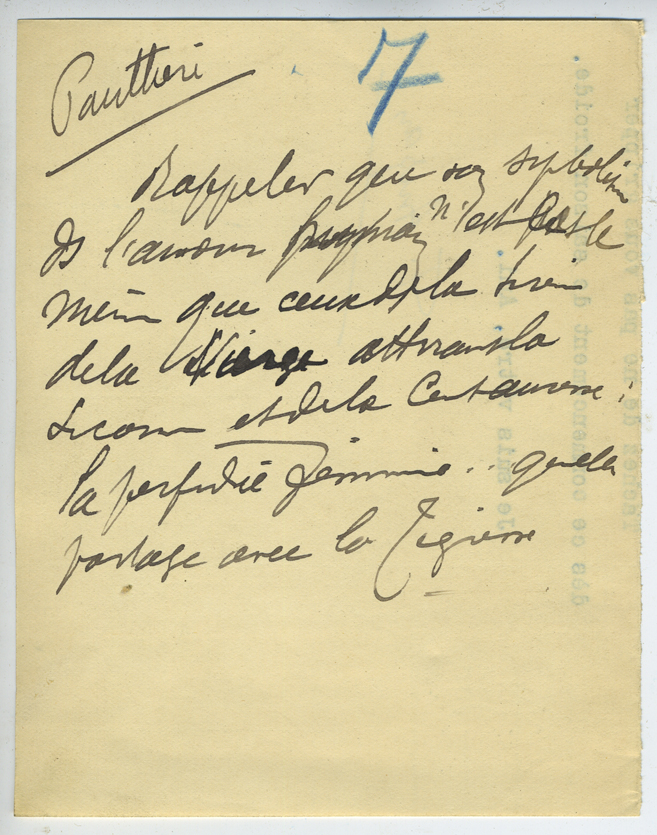 Panthère
7
Rappeler que son symbolisme
ds l'amour n'est pas le
même que ceux de la Sirène
de la Vierge attirant la
Licorne et de la Centauresse :
la perfidie féminine .. qu'elle
partage avec la Tigresse